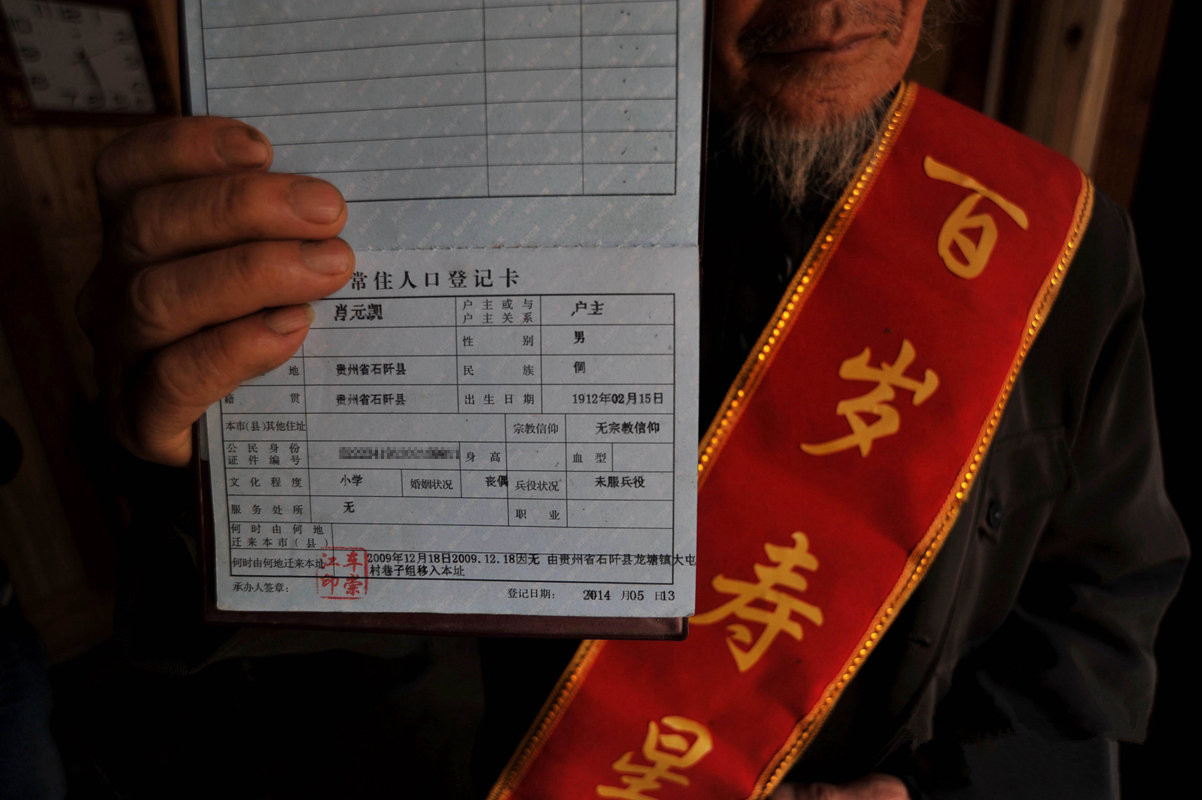 常住人口登记卡
肖元凯 户主或与户主关系 户主
性别 男
地 贵州省石阡县 民族 侗
籍贯 贵州省石阡县 出生日期 1912年02月15日
本市(县)其他住址 宗教信仰 无宗教信仰
公民身份证件编号 身高 血型
文化程度 小学 婚姻状况 丧偶 兵役状况 未服兵役
服务处所 无 职业
何时由何地迁来本市(县)
何时由何地迁来本址 2009年12月18日2009.12.18因无 由贵州省石阡县龙塘镇大屯
村巷子组移入本址
承办人签章: 登记日期: 2014 月05 日13
百岁寿星